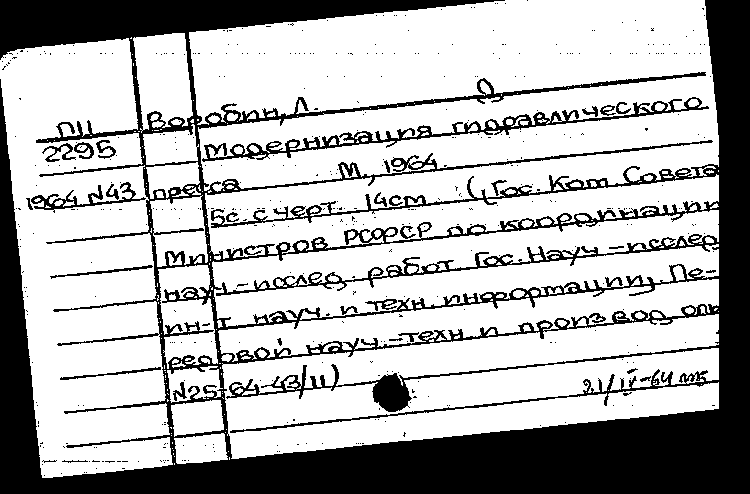 П11 Воробин, Л. О
2295 модернизация гидравлического
1964 N43 пресса М., 1964.
5с. с черт. 14см (Гос. Ком. Совета
Министров РСФСР по координации
науч.-исслед. работ. Гос. Науч-исслед
ин-т науч. и техн. информации. Пе-
редовой науч.-техн и производ. оп
N25-64-43/11)